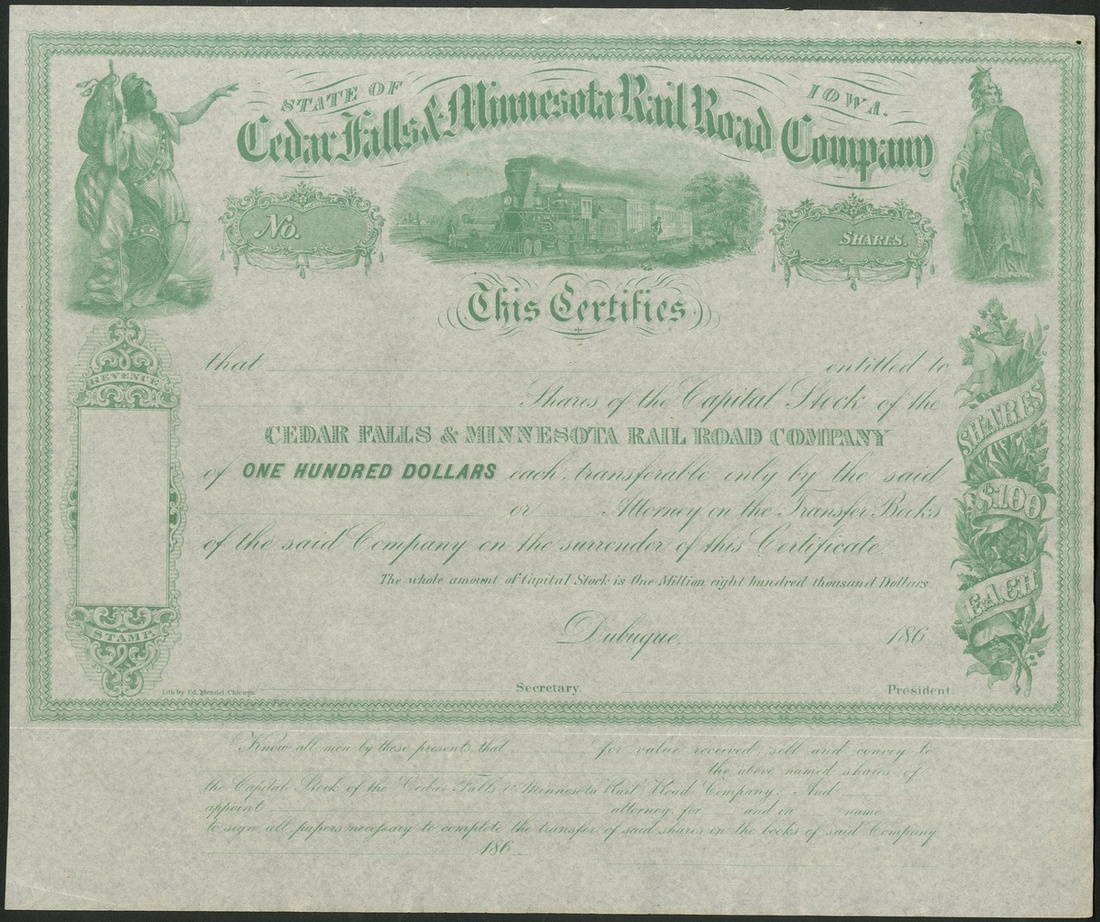 STATE OF IOWA.
Cedar Falls & Minnesota Rail Road Company
No.
SHARES.
This Certifies
that entitled to
Shares of the Capital Stock of the
CEDAR FALLS & MINNESOTA RAIL ROAD COMPANY
of ONE HUNDRED DOLLARS each, transferable only by the said
or Attorney on the Transfer Books
of the said Company on the surrender of this Certificate.
The whole amount of Capital Stock is One Million eight hundred thousand Dollars
Dubuque, 186
Secretary. President.
REVENUE
STAMP.
SHARES
$100
EACH
Lith by Ed. Mendel, Chicago.
Know all men by these presents, that for value received, sell and convey to
the above named shares of
the Capital Stock of the Cedar Falls & Minnesota Rail Road Company. And
appoint attorney for and in name
to sign all papers necessary to complete the transfer of said shares on the books of said Company
186